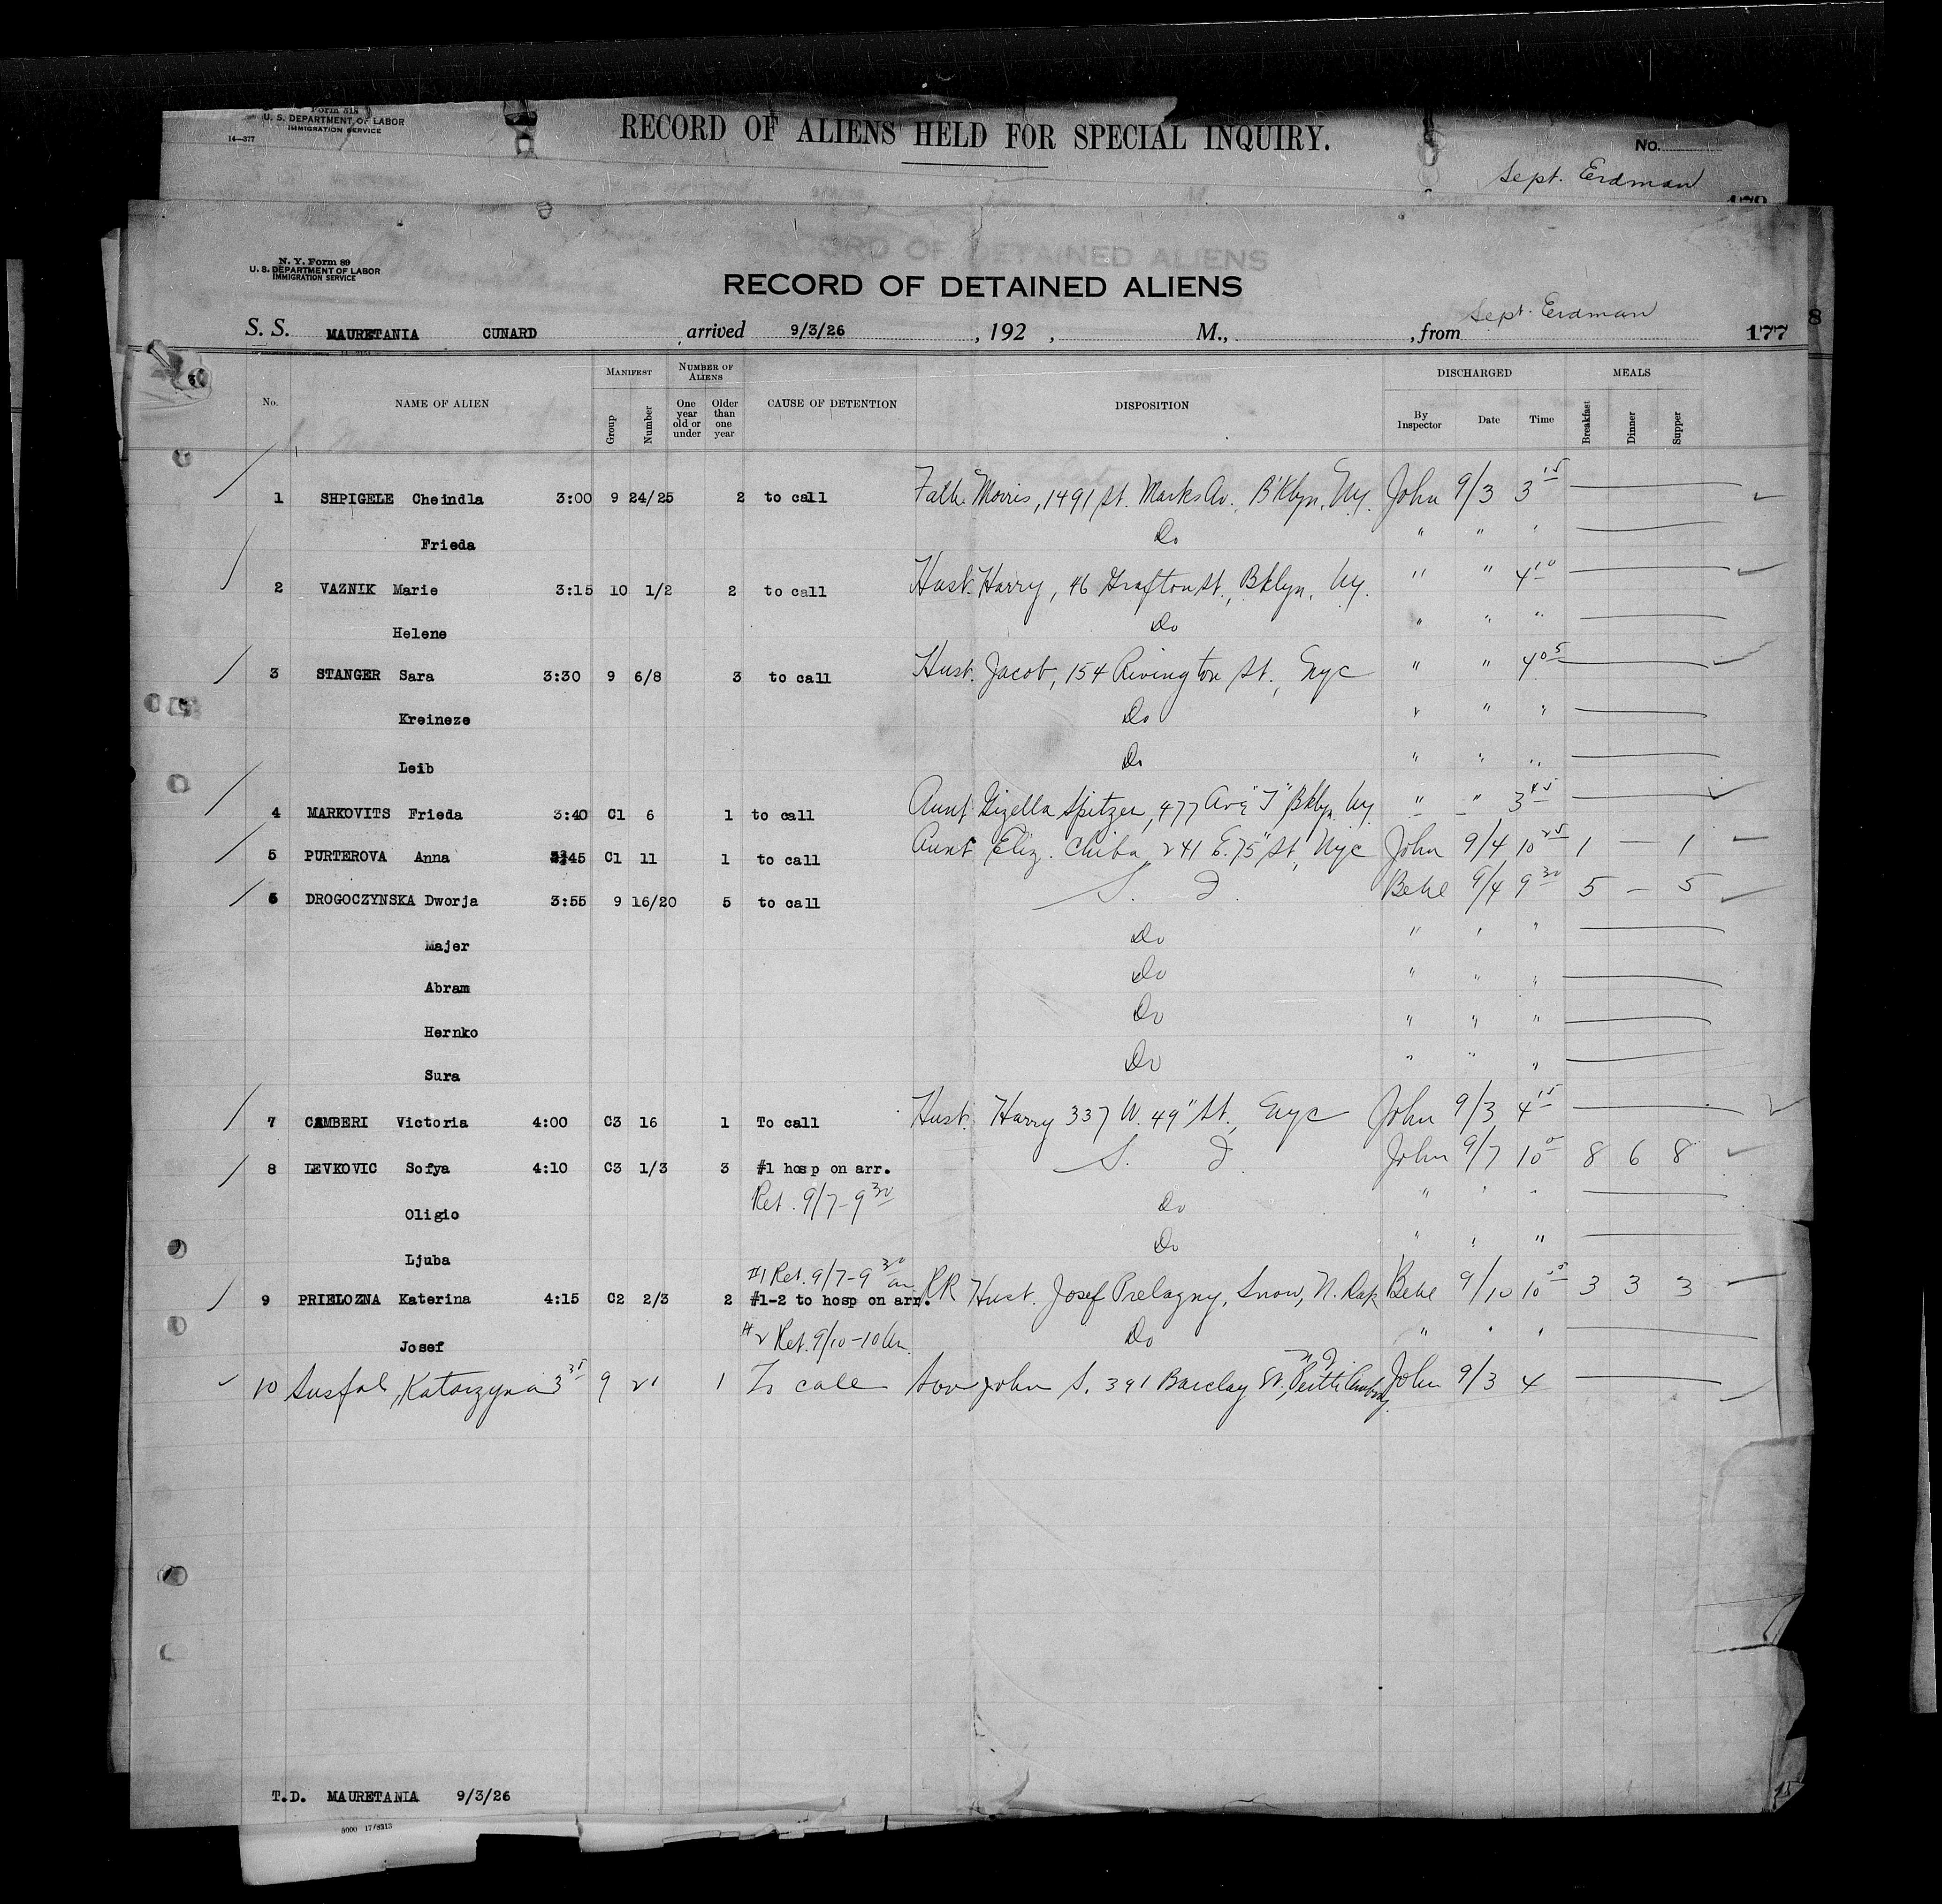 Form 518
U. S. DEPARTMENT OF LABOR
IMMIGRATION SERVICE
14—377
RECORD OF ALIENS HELD FOR SPECIAL INQUIRY.
No.
Sept. Erdman
N. Y. Form 89
U. S. DEPARTMENT OF LABOR
IMMIGRATION SERVICE
RECORD OF DETAINED ALIENS
Sept. Erdman
S. S. MAURETANIA CUNARD , arrived 9/3/26 , 192 , M., , from 177
No. NAME OF ALIEN MANIFEST Group Number NUMBER OF ALIENS One year old or under Older than one year CAUSE OF DETENTION DISPOSITION DISCHARGED By Inspector Date Time MEALS Breakfast Dinner Supper
1 SHPIGELE Cheindla 3:00 9 24/25 2 to call Fath. Morris, 1491 St. Marks Av., B'klyn, Ny. John 9/3 3 15
Frieda Do " " "
2 VAZNIK Marie 3:15 10 1/2 2 to call Husb. Harry, 46 Grafton St., Bklyn, Ny. " " 4 10
Helene Do " " "
3 STANGER Sara 3:30 9 6/8 3 to call Husb. Jacob, 154 Rivington St., Nyc " " 4 05
Kreineze Do " " "
Leib Do " " "
4 MARKOVITS Frieda 3:40 C1 6 1 to call Aunt Gizella Spitzer, 477 Ave "J" Bklyn Ny. " " 3 45
5 PURTEROVA Anna 3:45 C1 11 1 to call Aunt Eliz. Chiba, 241 E. 75" St, Nyc John 9/4 10 25 1 — 1
6 DROGOCZYNSKA Dworja 3:55 9 16/20 5 to call S. I. 9/4 9 30 5 — 5
Majer Do " " "
Abram Do " " "
Hernko Do " " "
Sura Do " " "
7 CAMBERI Victoria 4:00 C3 16 1 To call Husb. Harry 337 W. 49" St., Nyc John 9/3 4 15
8 LEVKOVIC Sofya 4:10 C3 1/3 3 #1 hosp on arr. S. I. John 9/7 10 8 6 8
Ret. 9/7-9 30
Oligio Do " " "
Ljuba Do " " "
#1 Ret. 9/7-9 30 am
9 PRIELOZNA Katerina 4:15 C2 2/3 2 #1-2 to hosp on arr. RR Husb. Josef Prelozny, Snow, N. Dak 9/10 10 3 3 3
#2 Ret. 9/10-10 Am.
Josef Do " " "
10 Susfal, Katarzyna 3 35 9 21 1 To call Son John S. 391 Barclay St., Perth Amboy NJ John 9/3 4
T.D. MAURETANIA 9/3/26
5000 17/8213